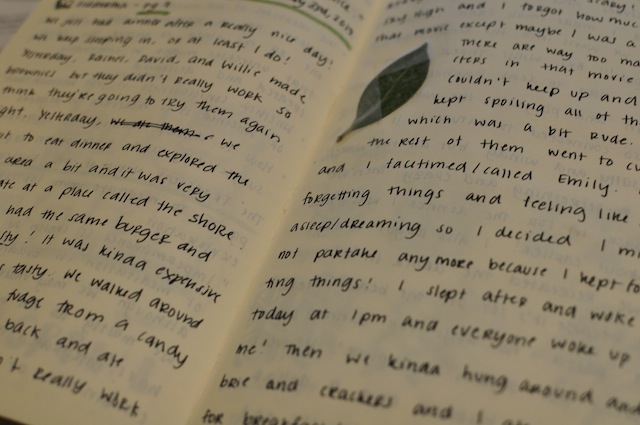 we just had dinner after a really nice day!
we keep sleeping in, or at least I do!
Yesterday, Rachel, David, and Willie made
brownies but they didn't really work so
think they're going to try them again
ght. Yesterday, we ate them we
t to eat dinner and explored the
area a bit and it was very
ate at a place called the Shore
had the same burger and
sty! It was kinda expensive
s tasty. we walked around
fudge from a candy
back and ate
n't really work
say high and I forgot how muc
that movie except maybe I was a
There are way too ma
cters in that movie
couldn't keep up and
kept spoiling all of th
which was a bit rude.
the rest of them went to cv
and I facetimed/called Emily.
forgetting things and feeling like
asleep/dreaming so I decided I mi
not partake anymore because I kept fo
ting things! I slept after and woke
today at 1pm and everyone woke up
me! Then we kinda hung around and
brie and crackers and I at
for breakfast